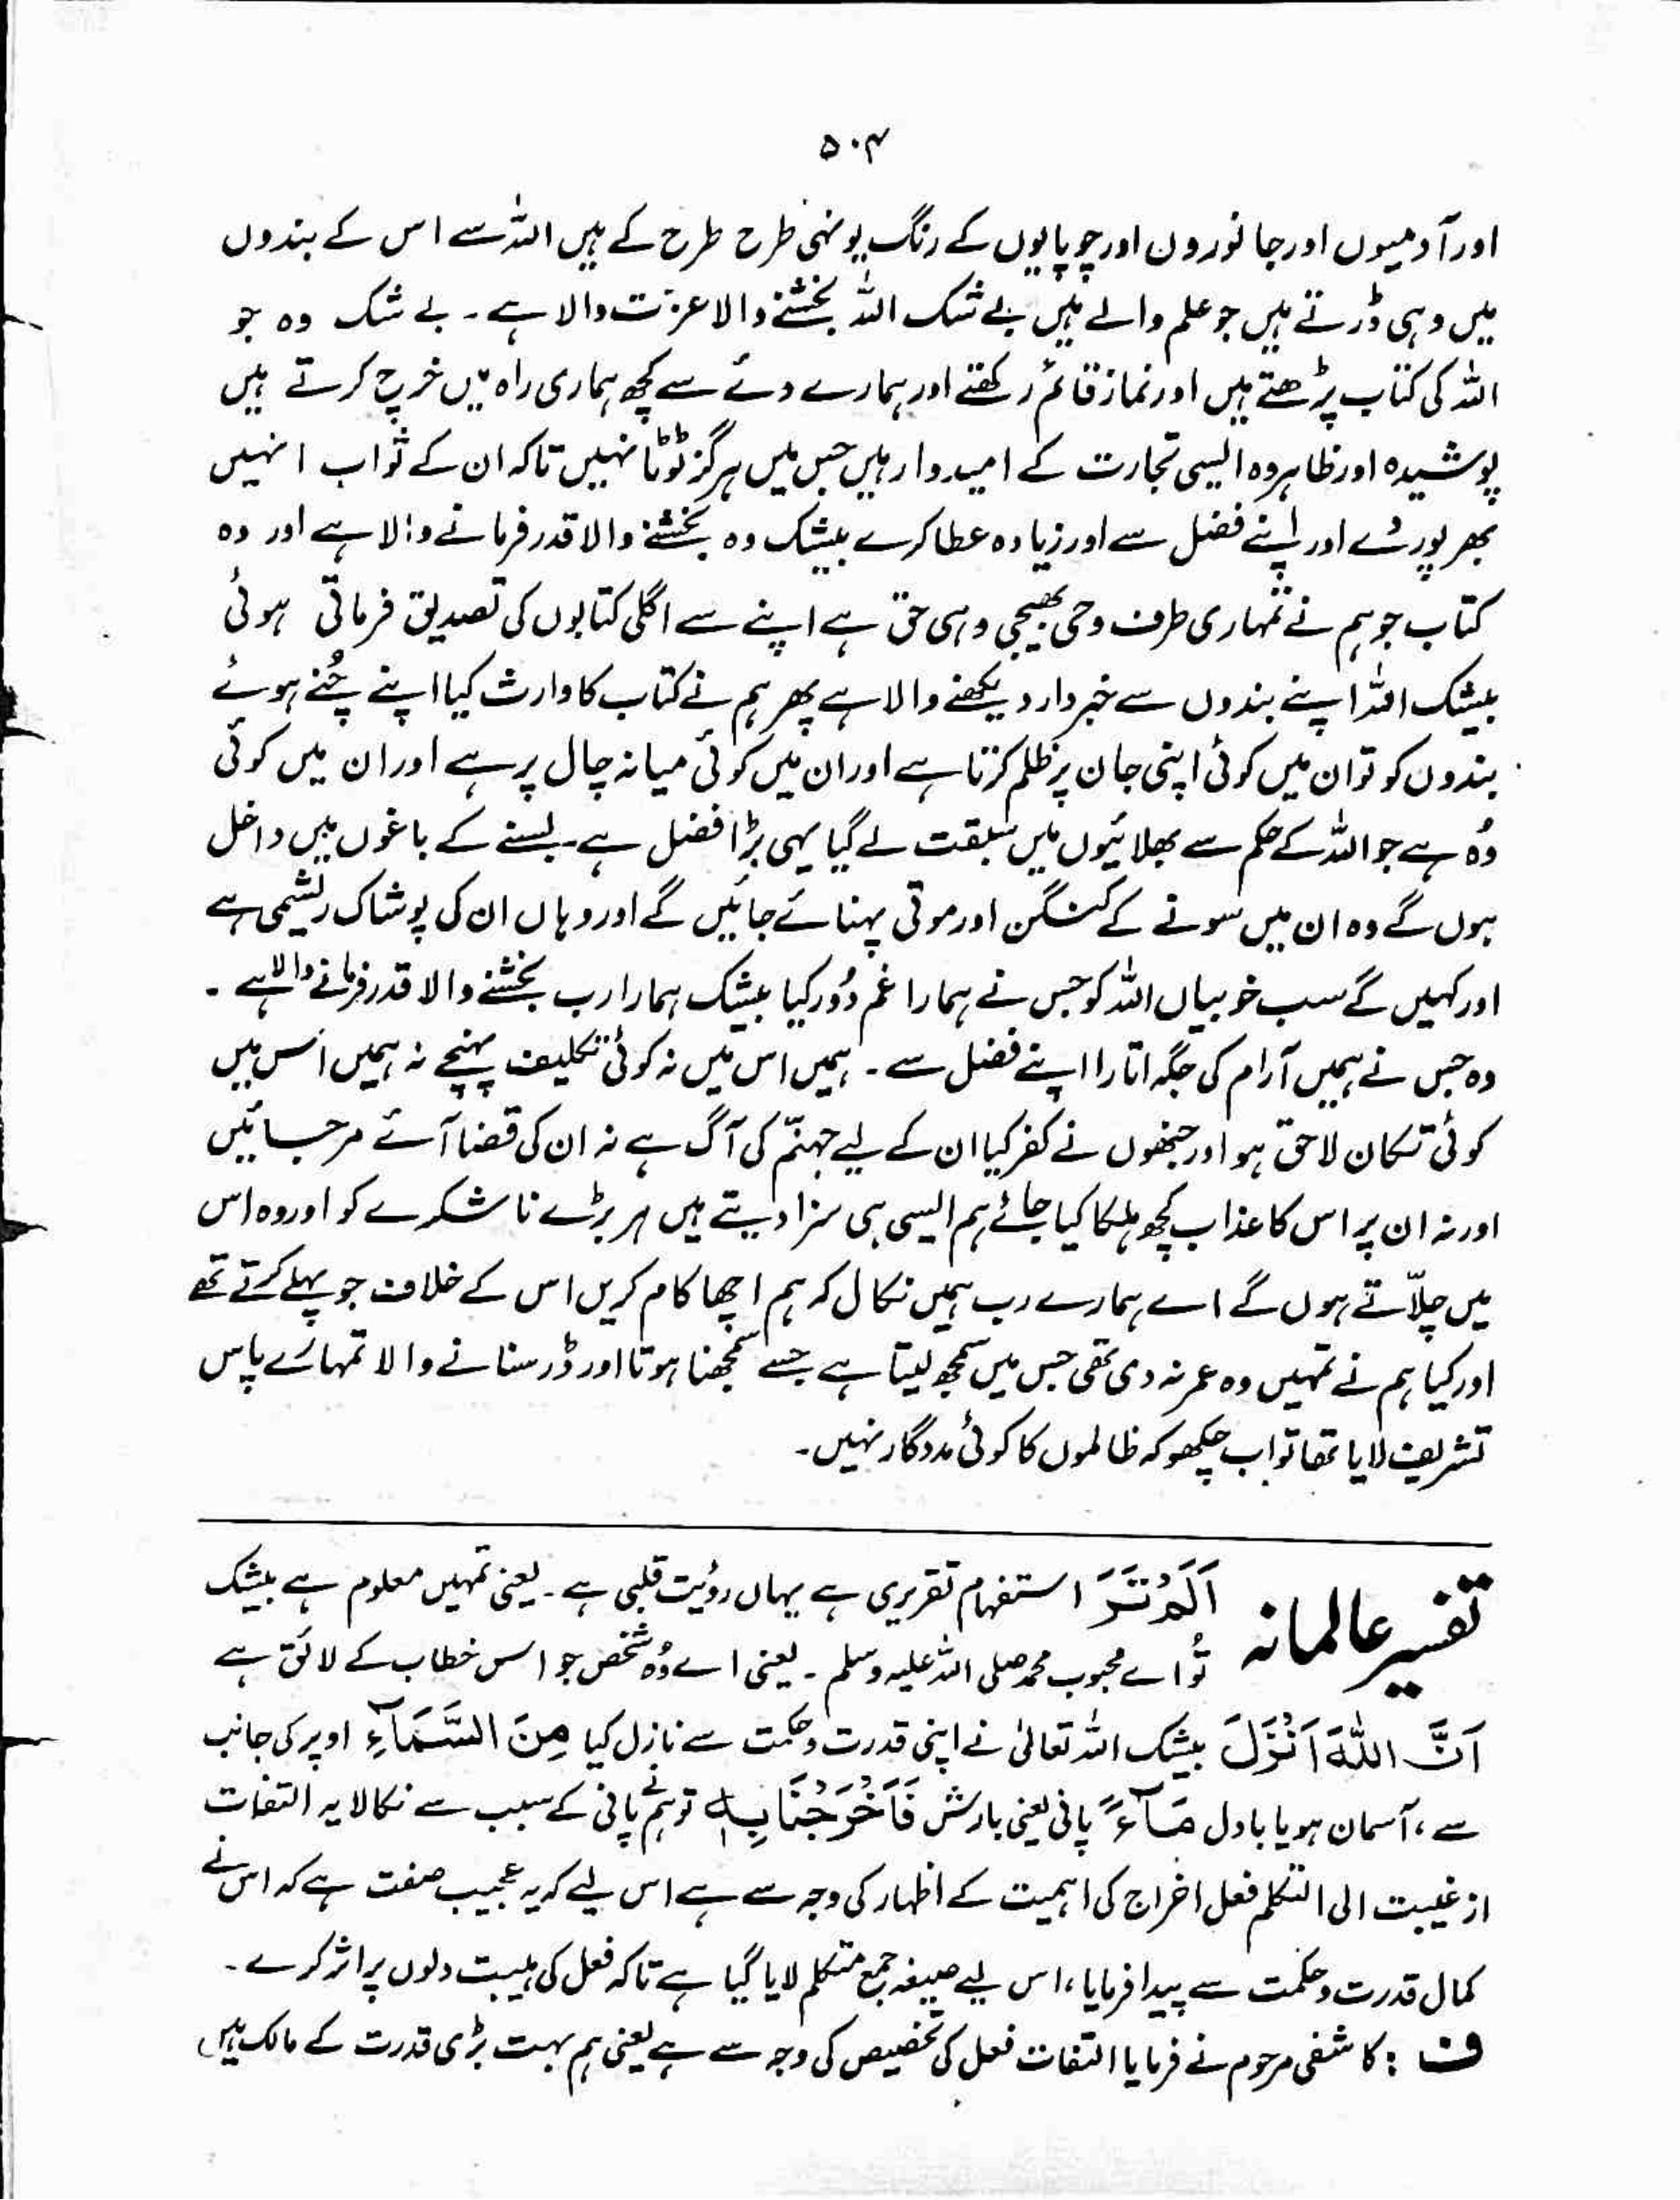 ۵۰۴
اور آدمیوں اور جانوروں اور چوپایوں کے رنگ یونہی طرح طرح کے ہیں اللہ سے اس کے بندوں
میں وہی ڈرتے ہیں جو علم والے ہیں بے شک اللہ بخشنے والا عزت والا ہے ۔ بے شک وہ جو
اللہ کی کتاب پڑھتے ہیں اور نماز قائم رکھتے اور ہمارے دئے سے کچھ ہماری راہ میں خرچ کرتے ہیں
پوشیدہ اور ظاہر وہ ایسی تجارت کے امیدوار ہیں جس میں ہرگز ٹوٹا نہیں تاکہ ان کے ثواب انہیں
بھرپور دے اور اپنے فضل سے اور زیادہ عطا کرے بیشک وہ بخشنے والا قدر فرمانے والا ہے اور وہ
کتاب جو ہم نے تمہاری طرف وحی بھیجی وہی حق ہے اپنے سے اگلی کتابوں کی تصدیق فرماتی ہوئی
بیشک اللہ اپنے بندوں سے خبردار دیکھنے والا ہے پھر ہم نے کتاب کا وارث کیا اپنے چُنے ہوئے
بندوں کو تو ان میں کوئی اپنی جان پر ظلم کرتا ہے اور ان میں کوئی میانہ چال پر ہے اور ان میں کوئی
وُہ ہے جو اللہ کے حکم سے بھلائیوں میں سبقت لے گیا یہی بڑا فضل ہے ۔ بسنے کے باغوں میں داخل
ہوں گے وہ ان میں سونے کے کنگن اور موتی پہنائے جائیں گے اور وہاں ان کی پوشاک ریشمی ہے
اور کہیں گے سب خوبیاں اللہ کو جس نے ہمارا غم دُور کیا بیشک ہمارا رب بخشنے والا قدر فرمانے والا ہے ۔
وہ جس نے ہمیں آرام کی جگہ اتارا اپنے فضل سے ۔ ہمیں اس میں نہ کوئی تکلیف پہنچے نہ ہمیں اس میں
کوئی تکان لاحق ہو اور جنھوں نے کفر کیا ان کے لیے جہنّم کی آگ ہے نہ ان کی قضا آئے مر جائیں
اور نہ ان پر اس کا عذاب کچھ ہلکا کیا جائے ہم ایسی ہی سزا دیتے ہیں ہر بڑے ناشکرے کو اور وہ اس
میں چلّاتے ہوں گے اے ہمارے رب ہمیں نکال کہ ہم اچھا کام کریں اس کے خلاف جو پہلے کرتے تھے
اور کیا ہم نے تمہیں وہ عمر نہ دی تھی جس میں سمجھ لیتا ہے جسے سمجھنا ہوتا اور ڈر سنانے والا تمہارے پاس
تشریف لایا تھا تو اب چکھو کہ ظالموں کا کوئی مددگار نہیں ۔
تفسیر عالمانہ اَلَمْ تَرَ استفہام تقریری ہے یہاں روئیت قلبی ہے ۔ یعنی تمہیں معلوم ہے بیشک
تُو اے محبوب محمد صلی اللہ علیہ وسلم ۔ یعنی اے وُہ شخص جو اس خطاب کے لائق ہے
اَنَّ اللّٰهَ اَنْزَلَ بیشک اللہ تعالیٰ نے اپنی قدرت و حکمت سے نازل کیا مِنَ السَّمَآءِ اوپر کی جانب
سے ، آسمان ہو یا بادل مَآءً پانی یعنی بارش فَاَخْرَجْنَا بِهٖ تو ہم نے پانی کے سبب سے نکالا یہ التفات
از غیبت الی التکلم فعل اخراج کی اہمیت کے اظہار کی وجہ سے ہے اس لیے کہ یہ عجیب صنعت ہے کہ اس نے
کمال قدرت و حکمت سے پیدا فرمایا ، اس لیے صیغہ جمع متکلم لایا گیا ہے تاکہ فعل کی ہیبت دلوں پر اثر کرے ۔
ف : کاشفی مرحوم نے فرمایا التفات فعل کی تخصیص کی وجہ سے ہے یعنی ہم بہت بڑی قدرت کے مالک ہیں